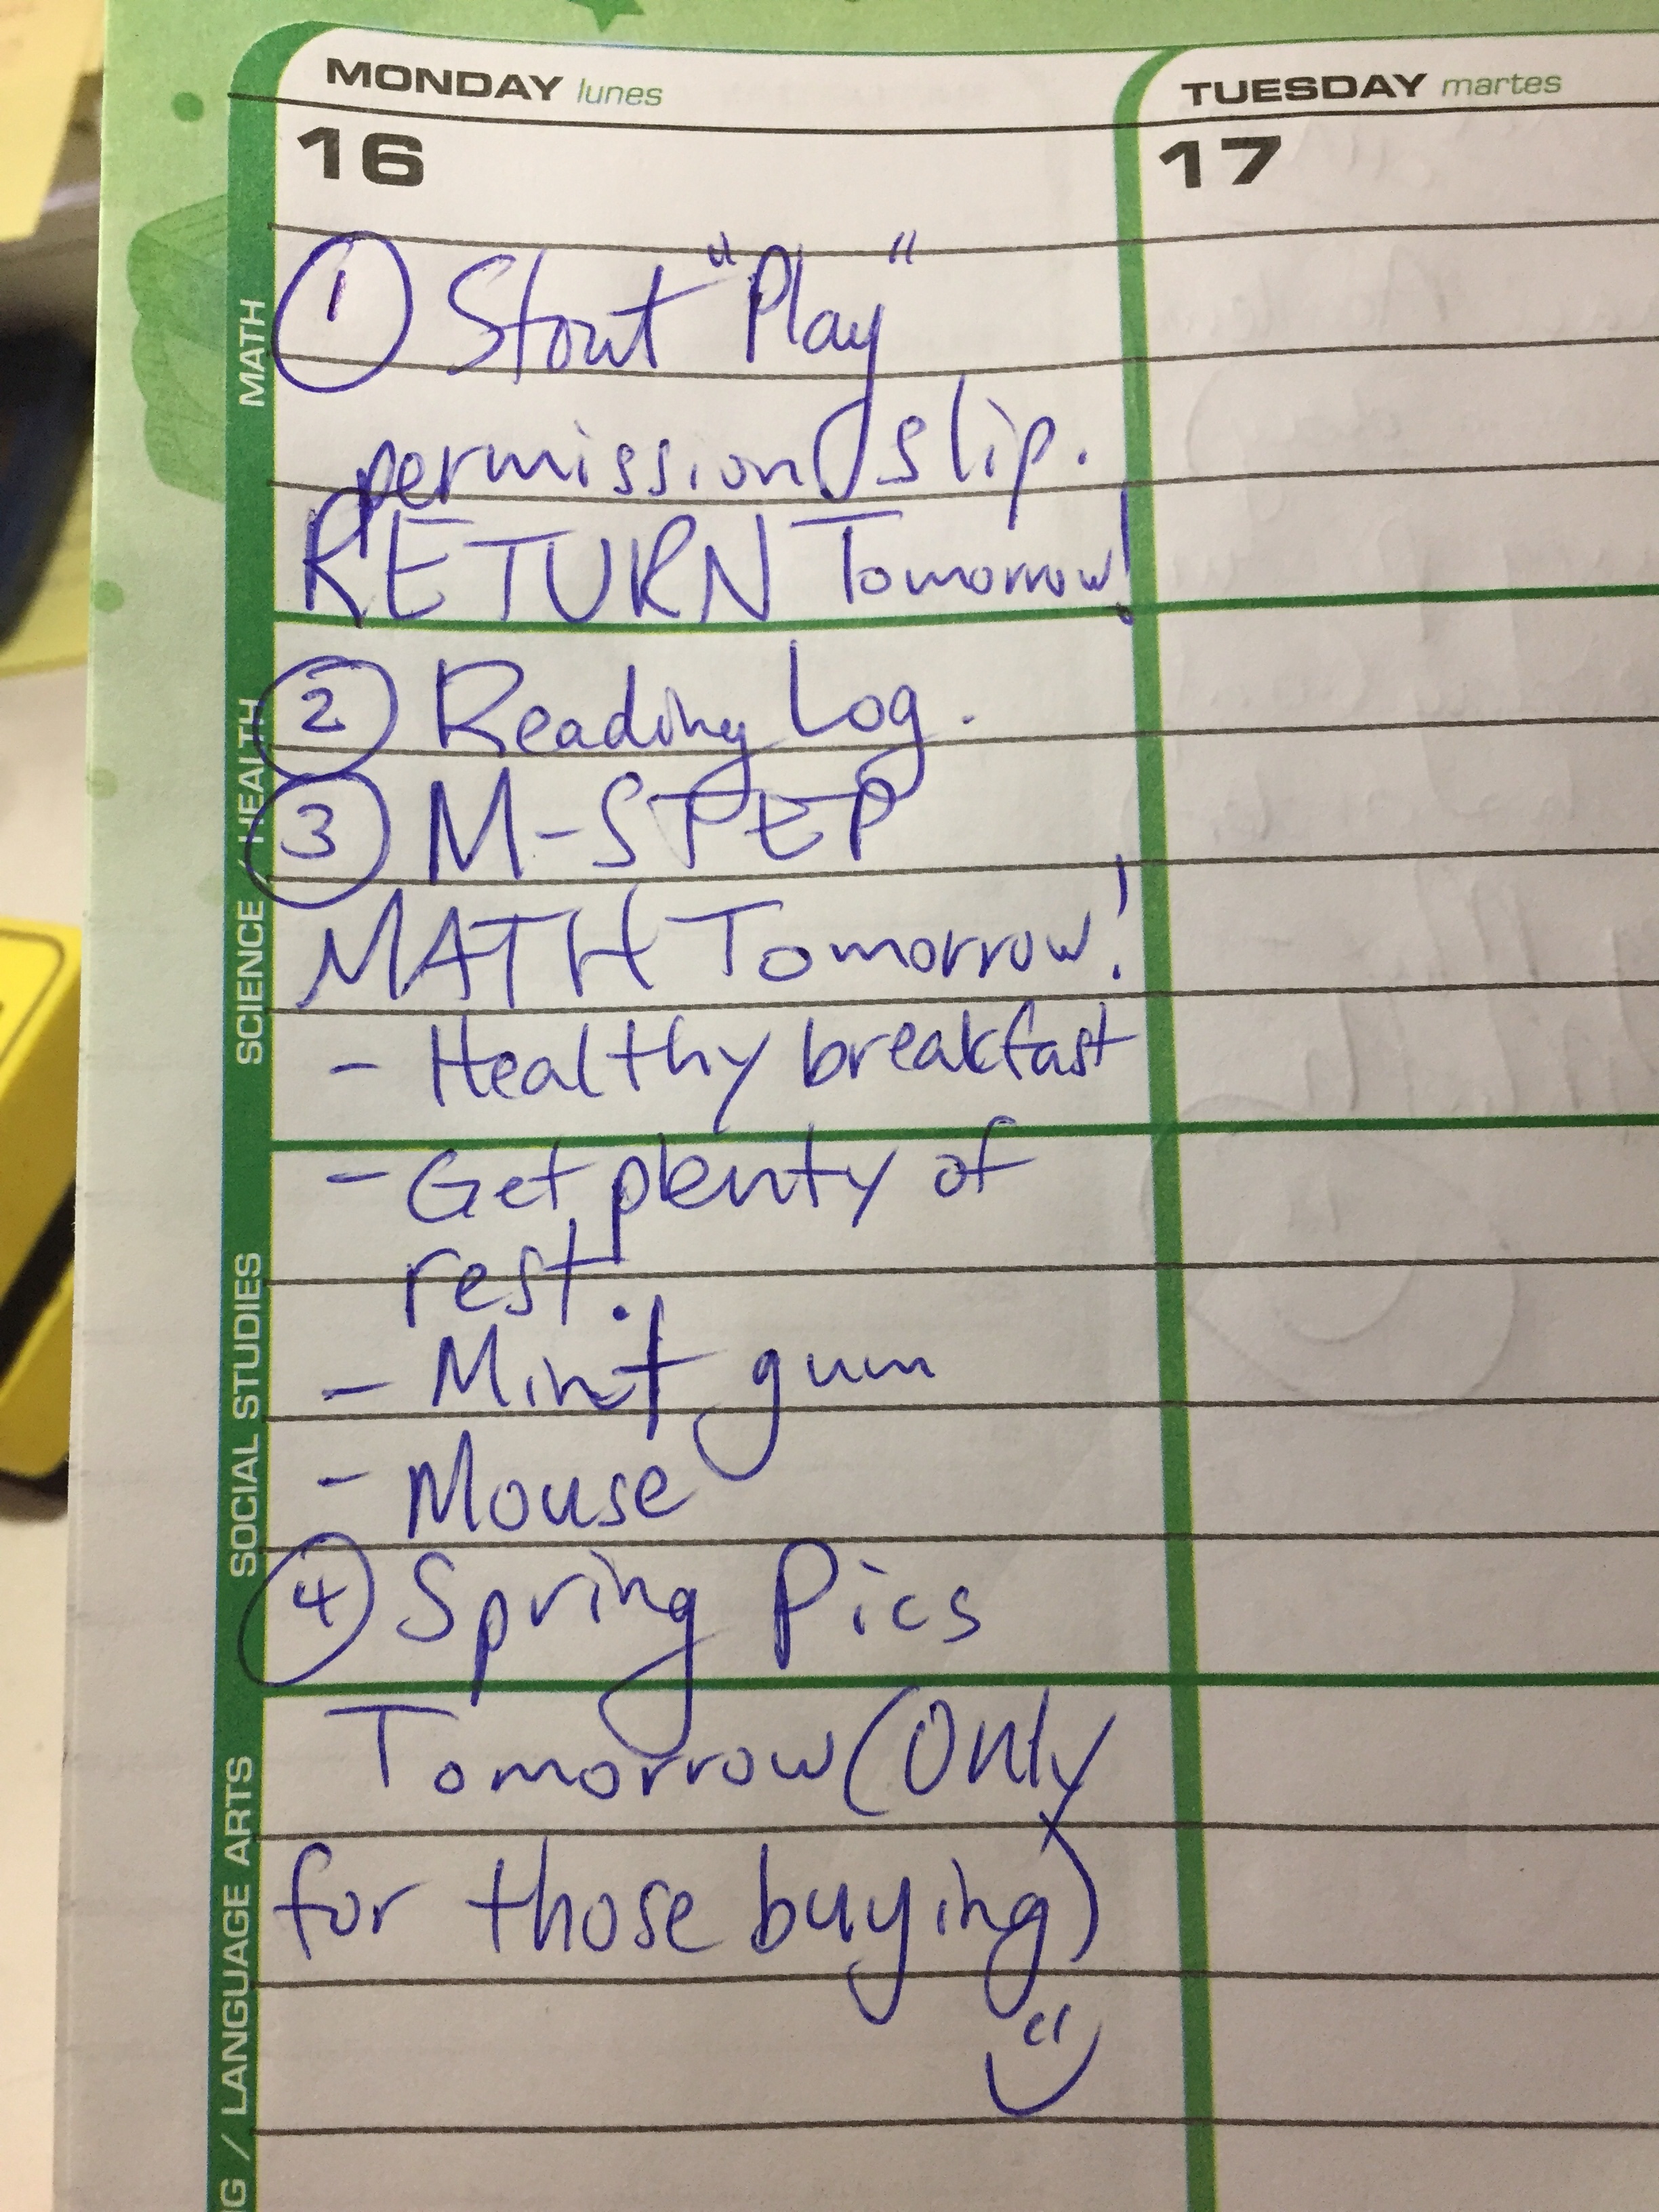 MONDAY lunes
TUESDAY martes
16
17
MATH
① Stout "Play"
permission slip.
RETURN Tomorrow!
SCIENCE / HEALTH
② Reading Log.
③ M-STEP
MATH Tomorrow!
- Healthy breakfast
SOCIAL STUDIES
- Get plenty of
rest.
- Mint gum
- Mouse
④ Spring Pics
G / LANGUAGE ARTS
Tomorrow (Only
for those buying)